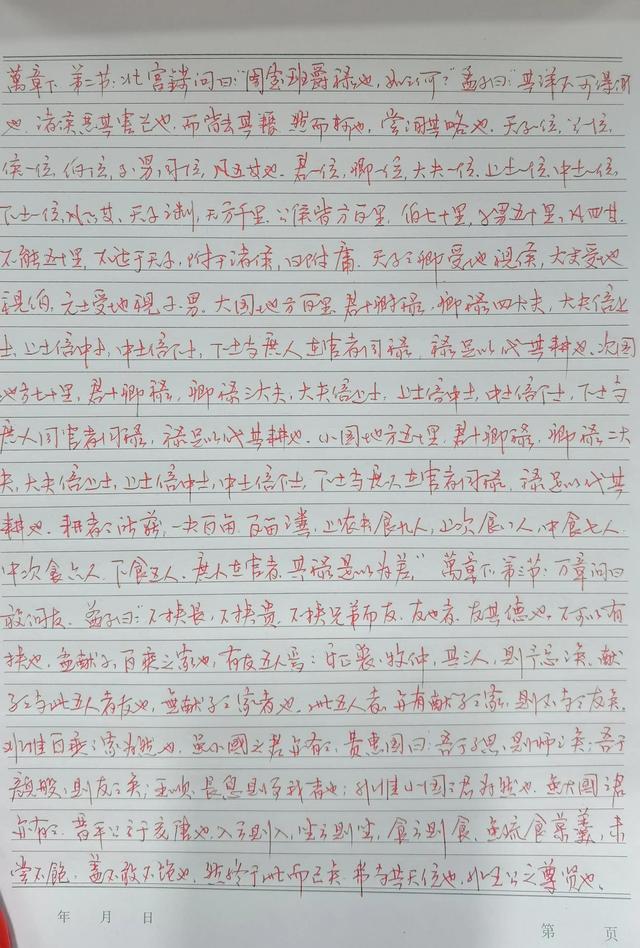 萬章下.第二节:北宫錡问曰:"周室班爵禄也,如之何?"孟子曰:"其详不可得闻
也.诸侯恶其害己也,而皆去其籍.然而軻也,尝闻其略也.天子一位,公一位,
侯一位,伯一位,子、男同位,凡五等也.君一位,卿一位,大夫一位,上士一位,中士一位,
下士一位,凡六等.天子之制,地方千里.公侯皆方百里,伯七十里,子男五十里,凡四等.
不能五十里,不达于天子,附于诸侯,曰附庸.天子之卿受地视侯,大夫受地
視伯,元士受地視子、男.大国地方百里,君十卿禄,卿禄四大夫,大夫倍上
士,上士倍中士,中士倍下士,下士与庶人在官者同禄,禄足以代其耕也.次国
地方七十里,君十卿禄,卿禄三大夫,大夫倍上士,上士倍中士,中士倍下士,下士与
庶人同官者同禄,禄足以代其耕也.小国地方五十里,君十卿禄,卿禄二大
夫,大夫倍上士,上士倍中士,中士倍下士,下士与庶人在官者同禄,禄足以代其
耕也.耕者之所获,一夫百亩.百亩之粪,上农夫食九人,上次食八人,中食七人,
中次食六人.下食五人.庶人在官者,其禄是以为差."萬章下.第三节:万章问曰
敢问友.孟子曰:"不挟長,不挟贵,不挟兄弟而友.友也者,友其德也,不可以有
挟也.孟献子,百乘之家也,有友五人焉:乐正裘、牧仲,其三人,则予忘之矣.献
子之与此五人者友也,無献子之家者也.此五人者,亦有献子之家,则不与之友矣.
非惟百乘之家为然也,虽小國之君亦有之.費惠国曰:吾于子思,则师之矣;吾于
顏般,则友之矣;王顺、長息则事我者也;非惟小国之君为然也,虽大國之君
亦有之.晋平公于亥唐也,入云则入,坐云则坐,食云则食.虽疏食菜羹,未
尝不飽,盖不敢不饱也.然终于此而已矣.弗与共天位也,非王公之尊贤也,
年 月 日
第 页